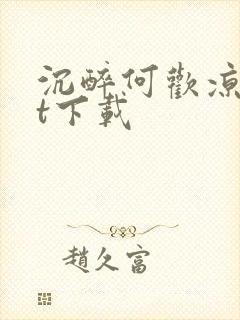 沉醉何歡涼
t下載
趙久富